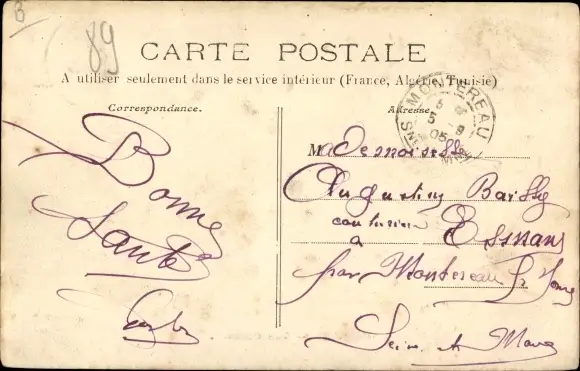 B
89
CARTE POSTALE
A utiliser seulement dans le service intérieur (France, Algérie, Tunisie)
Correspondance.
Adresse.
MONTEREAU
5 - 9
05
Bonne
Santé
Mademoiselle
Augustine
couturière
à Esmans
par Montereau f. Yonne
Seine et Marne